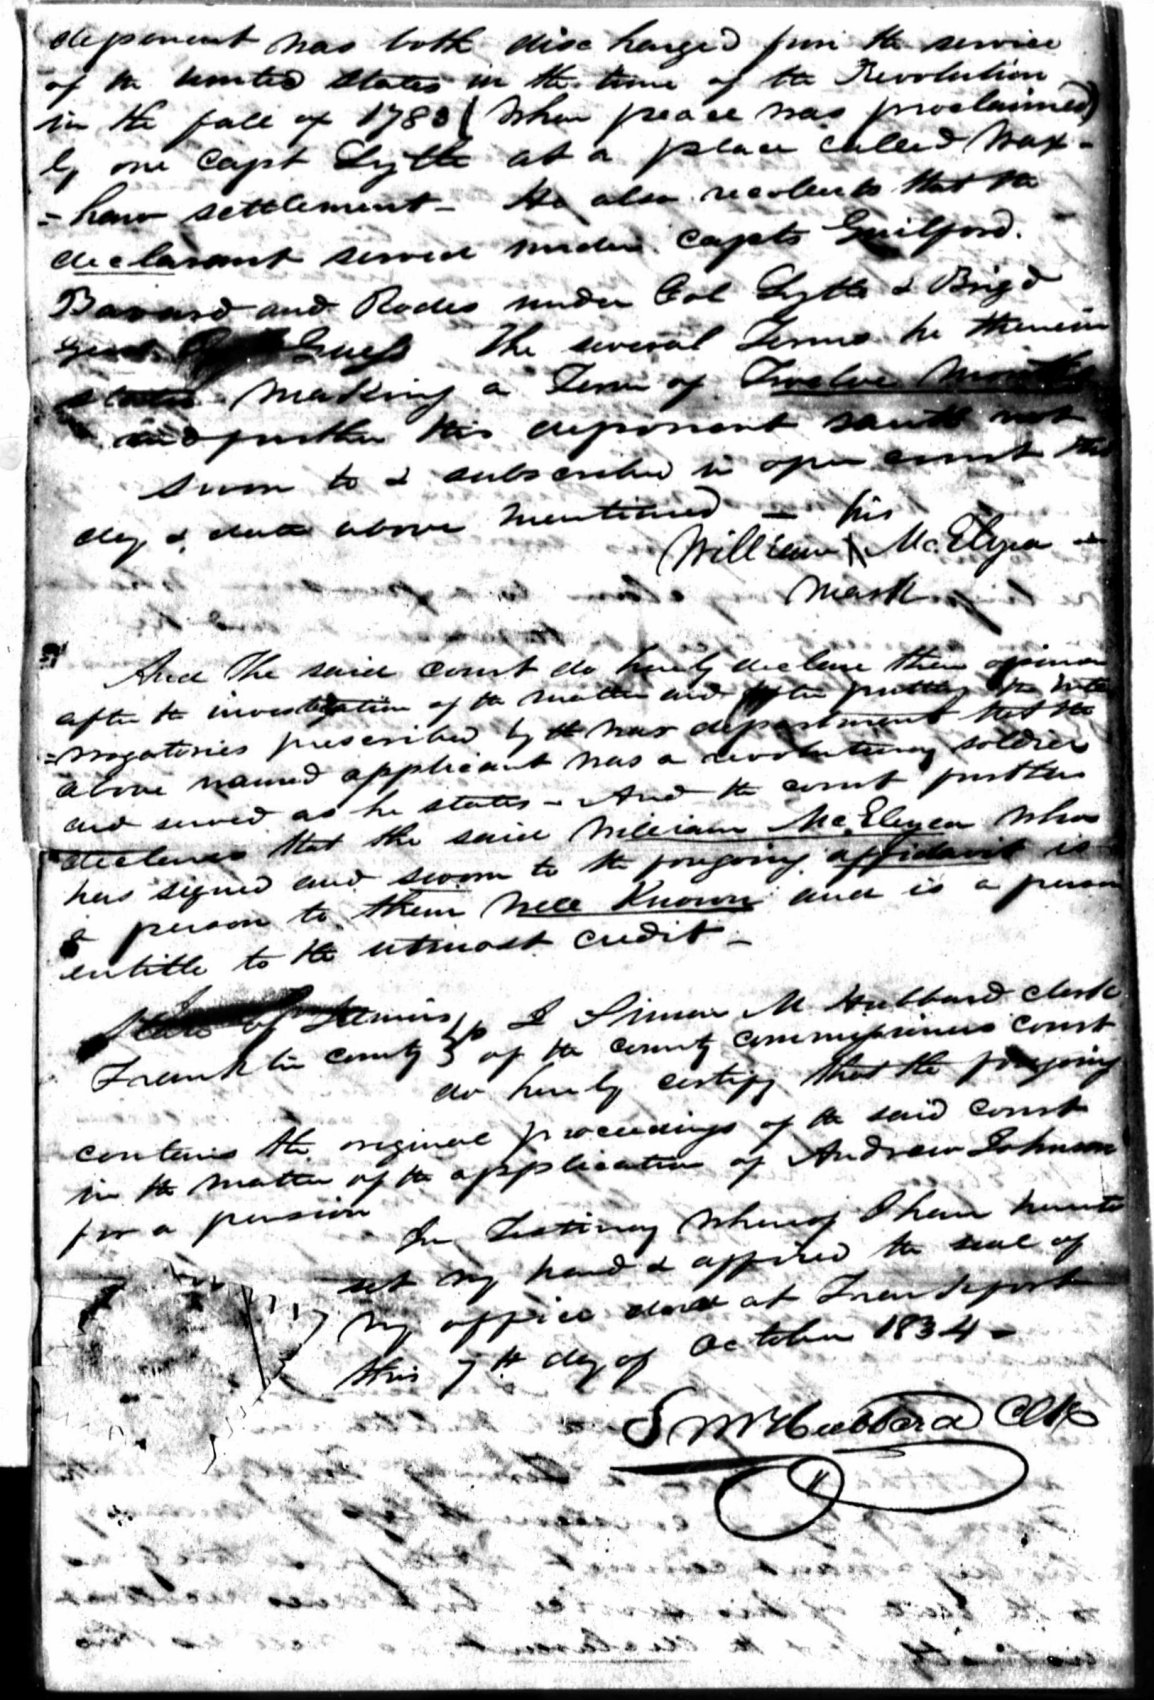 deponent was both discharged from the service
of the united states in the time of the Revolution
in the fall of 1783 (when peace was proclaimed)
by one Capt Lytle at a place called Wax-
=haw settlement - He also recollects that the
declarant served under Capts Guilford.
and Rodes under Col Lytle & Brigd
The several Terms he therein
stated making a Term of Twelve months
and further this deponent saith not
sworn to & subscribed in open court this
day & date above mentioned - his
William McElyea
mark
And the said court do hereby declare their opinion
after the investigation of the matter and after putting the inter
=rogatories prescribed by the war department that the
above named applicant was a revolutionary soldier
and served as he states - And the court further
declares that the said William McElyea who
has signed and sworn to the forgoing affidavit is
a person to them well Known and is a person
entitle to the utmost credit -
State of Illinois } I Simon M Hubbard clerk
Franklin county } of the county commissioners court
do hereby certify that the forgoing
contains the original proceedings of the said court
in the matter of the application of Andrew Johnson
for a pension
In Testimony whereof I have hereunto
set my hand & affixed the seal of
my office at Frankfort
this 7th day of October 1834 -
S M Hubbard Clk